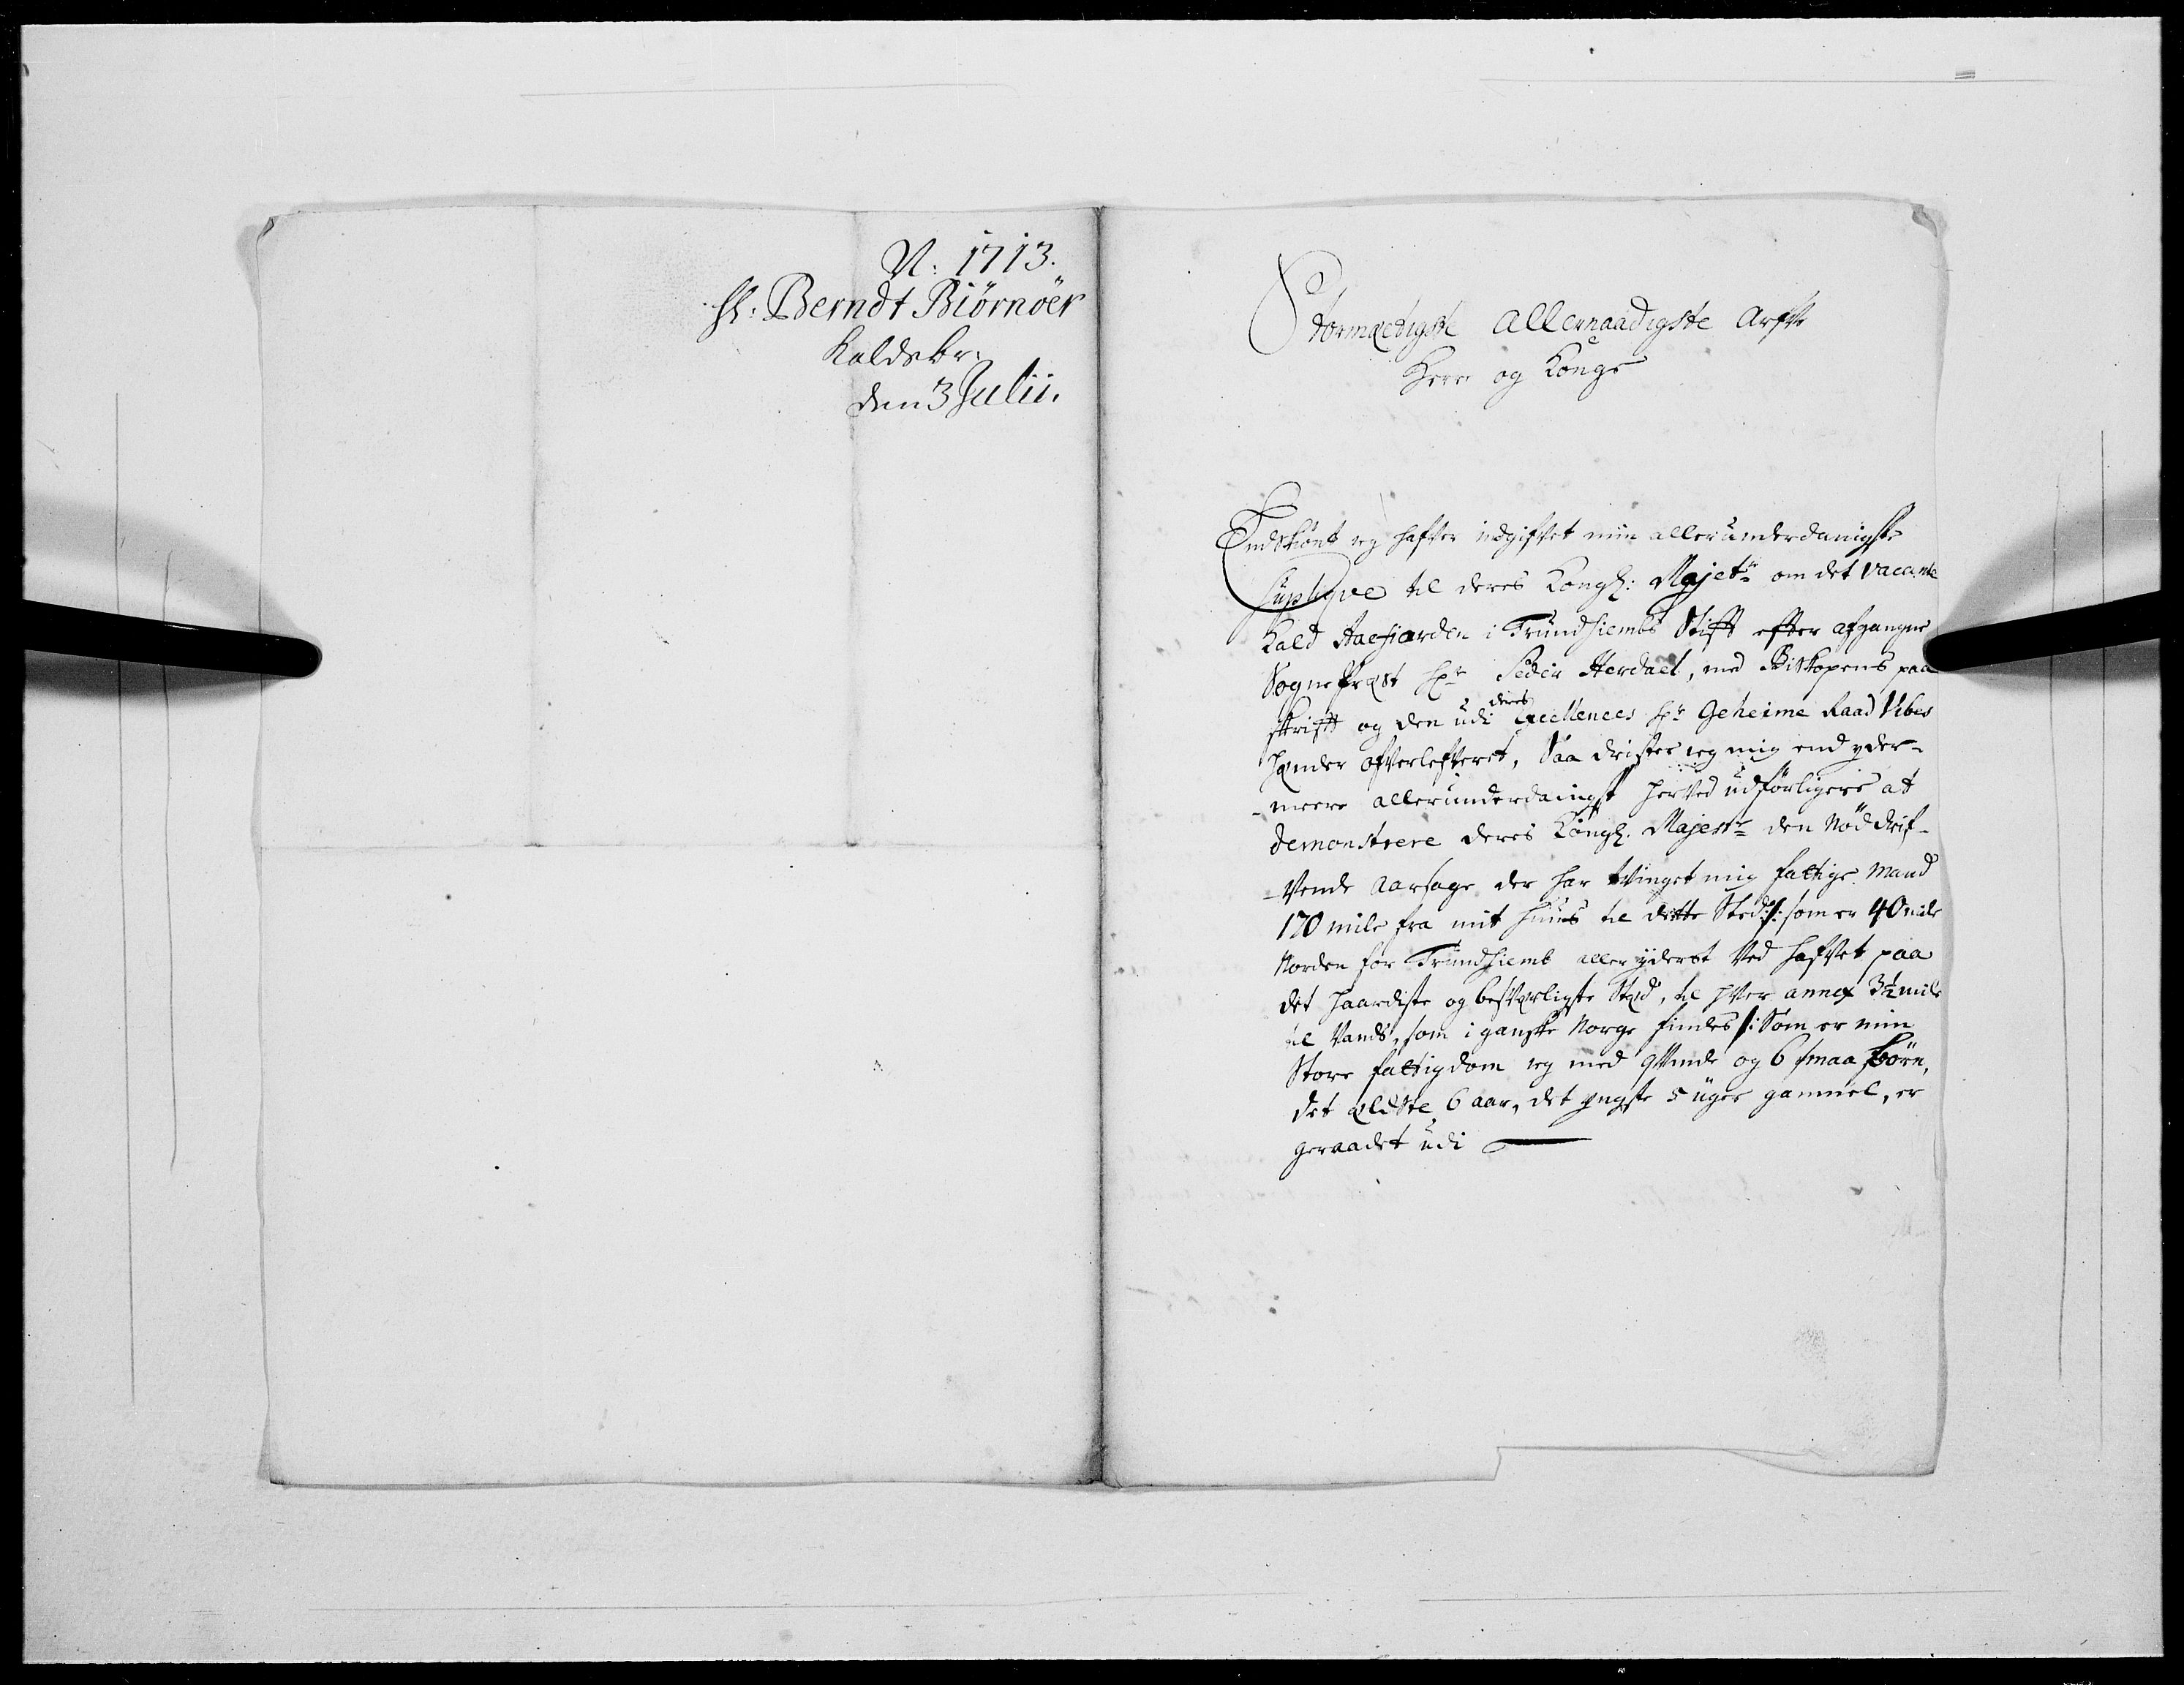 N: 1713.
Hl: Berndt Biørnöer
Kaldsbr:
den 3 Julii.
Stormægtigste Allernaadigste Arfve
Herre og Konge
Endskiönt ieg hafver indgifvet min allerunderdanigste
supliqve til deres Kongl: Majets om det vacante
Kald Aaefiorden i Trundhiembs Stift efter afgangne
Sognepræst Hr Peder Herdael, med Biskopens paa
skrift og den udi deres Excellences Hr Geheime Raad Vibes
hænder ofverlefveret, Saa drister ieg mig end yder-
-meere allerunderdanigst herved udförligere at
demonstrere deres Kongl. Majestt den Nöd drif-
-vende aarsage der har tvinget mig fattige Mand
170 mile fra mit huus til dette Sted /: som er 40 mile
Norden for Trundhiemb aller yderst ved hafvet paa
det haardiste og besværligste Stæd, til hver annex 3½ mile
til Vands, som i ganske Norge findes /: Som er min
Store fattigdom ieg med qvinde og 6 smaa börn,
det ældste 6 aar, det yngste 5 uger gammel, er
geraadet udi